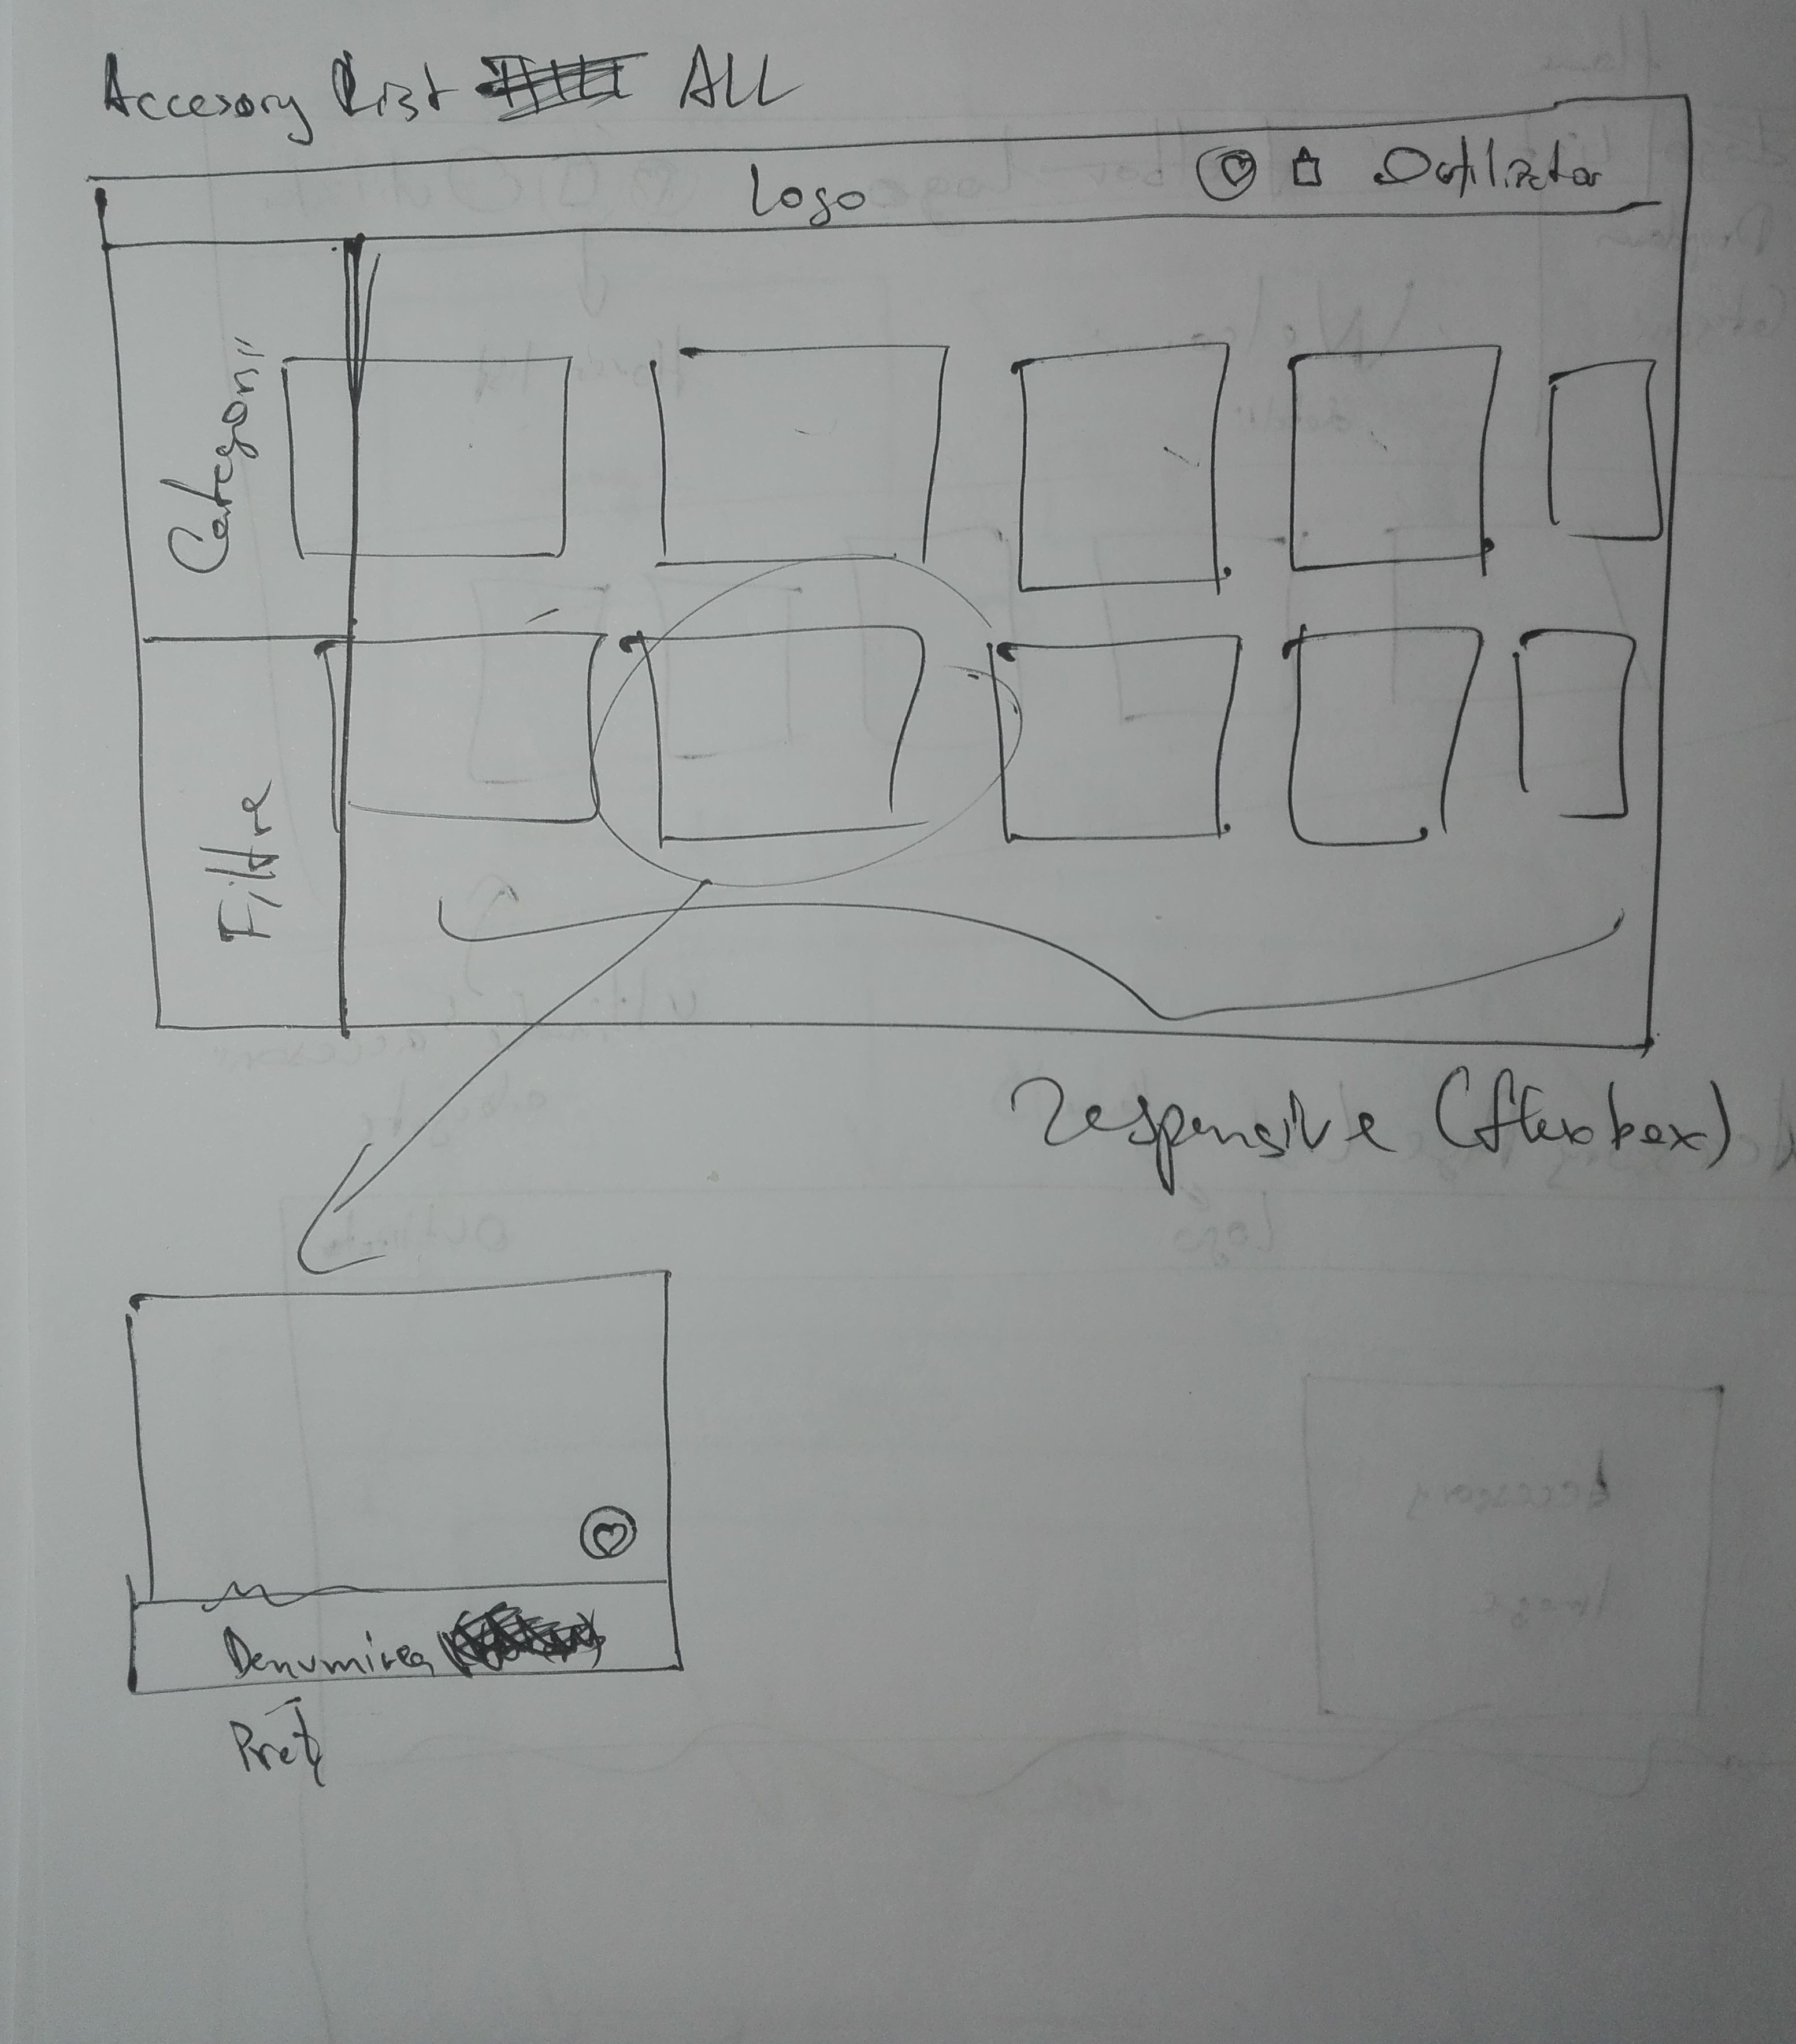 Accesory List ALL
Logo
Outilizator
Categorii
Filtre
responsive (flexbox)
Denumirea
Preț